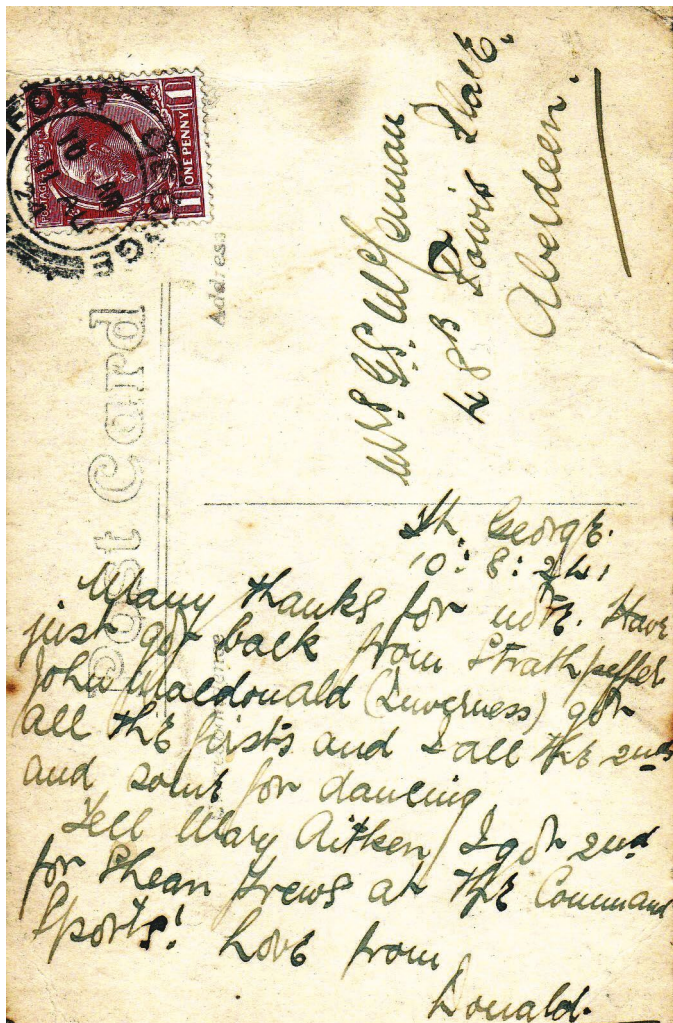 FORT GEORGE
10 AM
11 AU
24
POSTAGE
ONE PENNY
1 1
Post Card
Address
Mrs G.S. McLennan
48B Powis Place
Aberdeen.
Ft. George.
10:8:24.
Many thanks for note. Have
just got back from Strathpeffer
John Macdonald (Inverness) got
all the firsts and I all the 2nds
and some for dancing
Tell Mary Aitken I got 2nd
for Shean Trews at the Command
Sports! Love from
Donald.